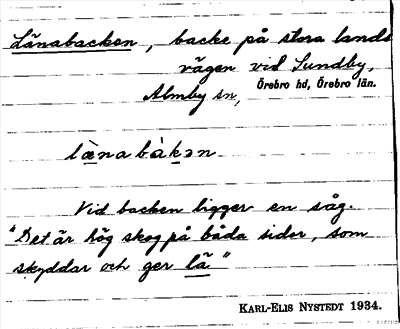 Länabacken, backe på stora lands
vägen vid Sundby,
Almby sn, Örebro hd, Örebro län.
lä̀nabàkən
Vid backen ligger en såg.
"Det är hög skog på båda sidor, som
skyddar och ger lä"
KARL-ELIS NYSTEDT 1934.